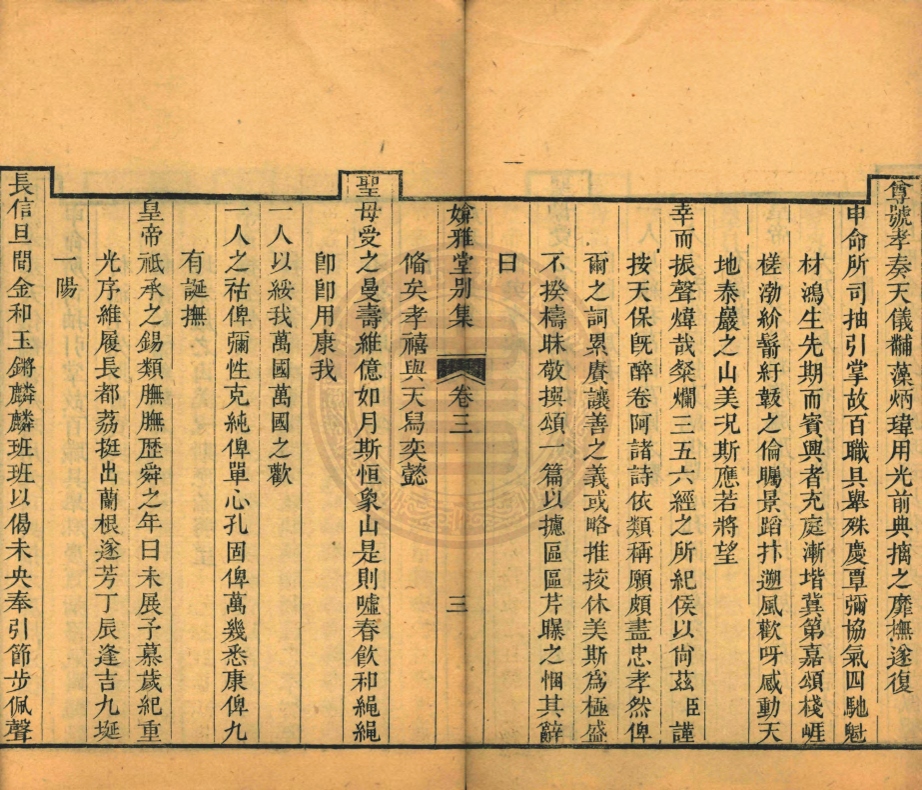 尊號孝奏天儀黼藻炳瑋用光前典摛之靡撫遂復
申命所司抽引掌故百職具舉殊慶覃彌協氣四馳魁
材鴻生先期而賓興者充庭漸堦冀第嘉頌棧崕
槎渤紛鬋紆韍之倫矚景蹈抃遡風歡呀感動天
地泰嚴之山美況斯應若將望
幸而振聲煒哉粲爛三五六經之所紀侯以尙茲臣謹
按天保旣醉卷阿諸詩依類稱願頗盡忠孝然俾
爾之詞累賡讓善之義或略推挍休美斯爲極盛
不揆檮昧敬撰頌一篇以攄區區芹曝之悃其辭
曰
媕雅堂別集 卷三 三
脩矣孝禧與天舄奕懿
聖母受之曼壽維億如月斯恒象山是則噓春飮和繩繩
卽卽用康我
一人以綏我萬國萬國之歡
一人之祜俾彌性克純俾單心孔固俾萬幾悉康俾九
有誕撫
皇帝祇承之錫類膴膴歷舜之年曰未展予慕歲紀重
光序維履長都荔挺出蘭根遂芳丁辰逢吉九埏
一陽
長信旦間金和玉鏘麟麟班班以偈未央奉引節步佩聲